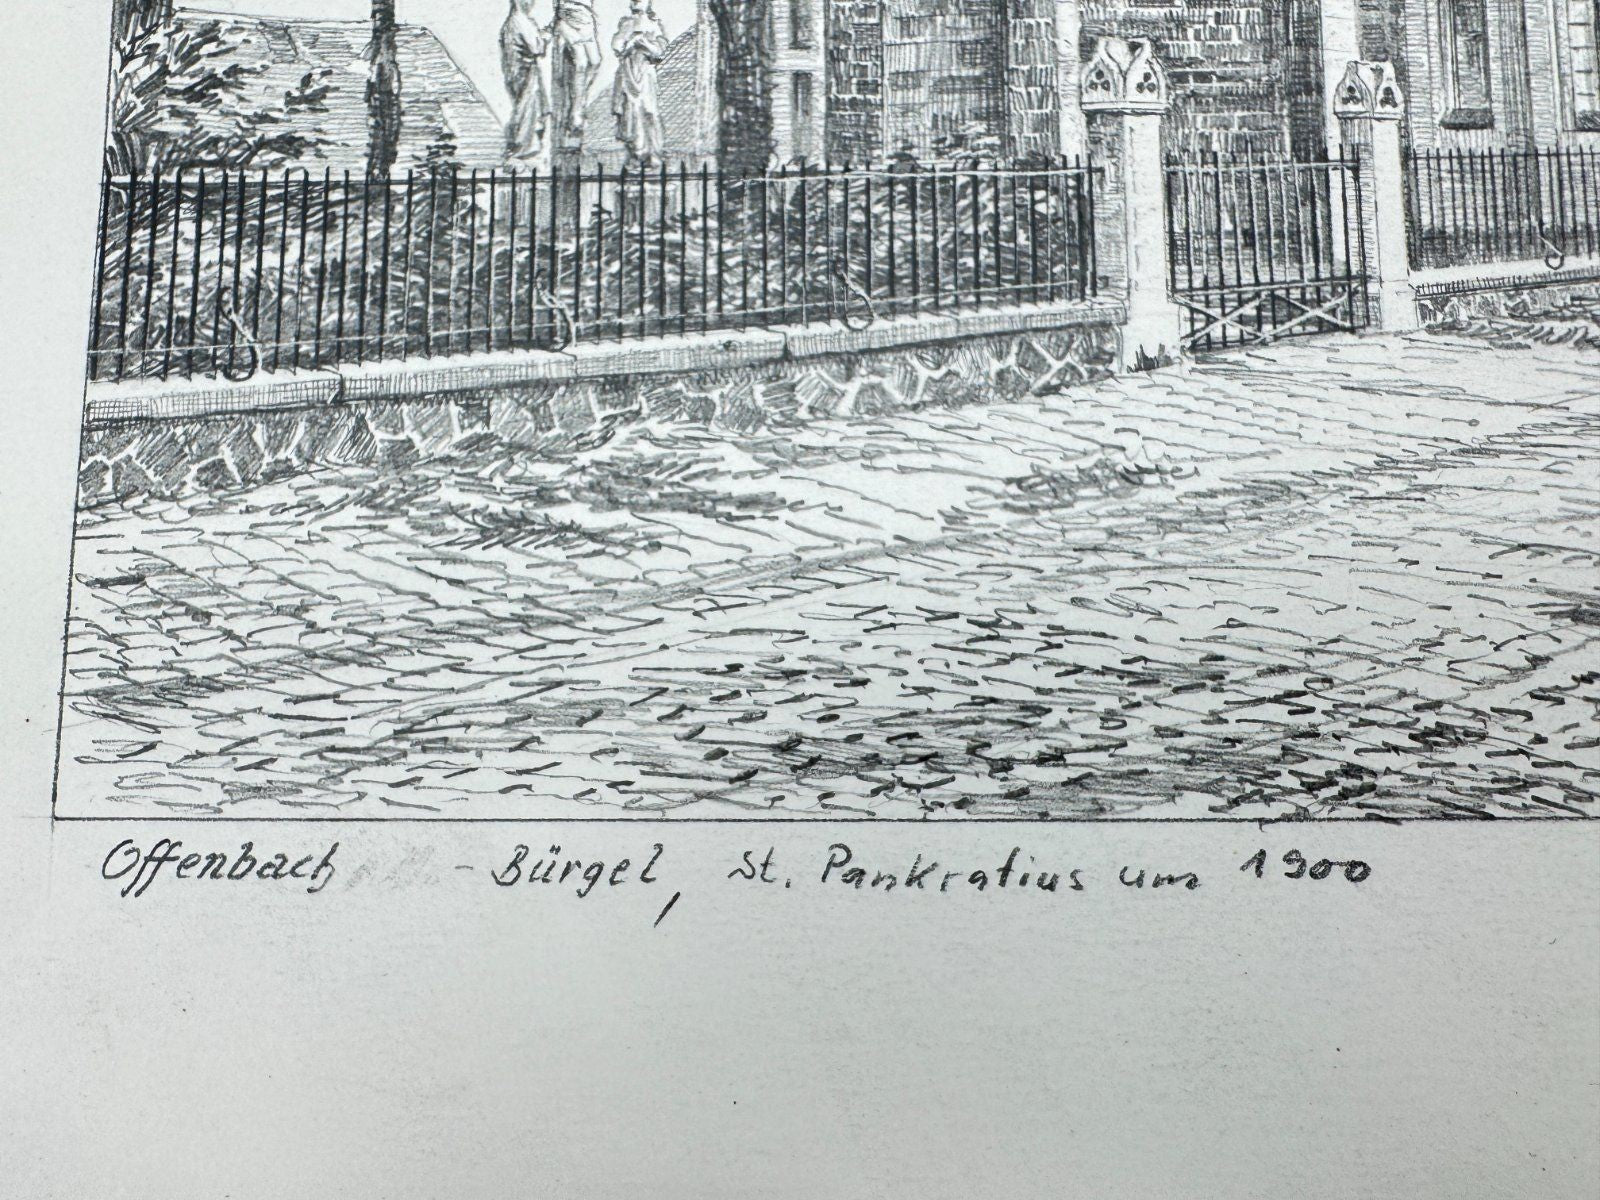 Offenbach - Bürgel, St. Pankratius um 1900